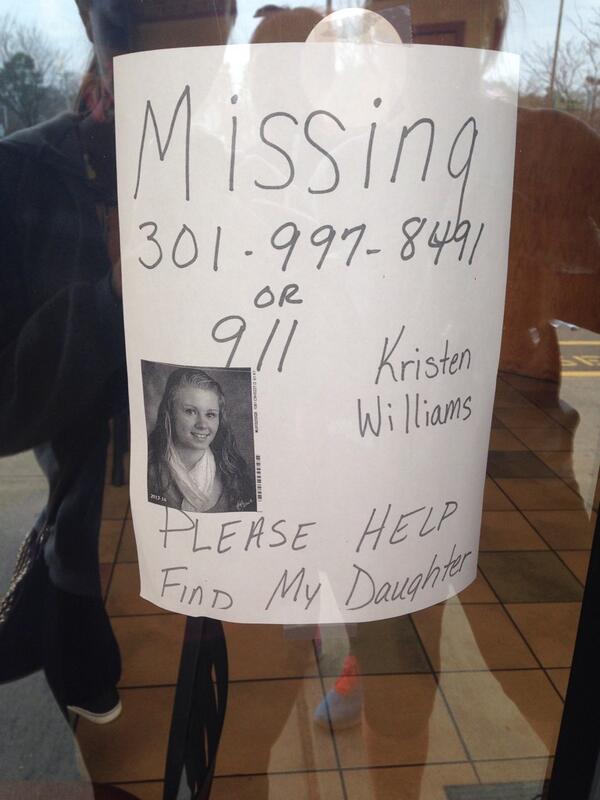 Missing
301-997-8491
OR
911
Kristen
Williams
2013-14
PLEASE HELP
FIND My Daughter